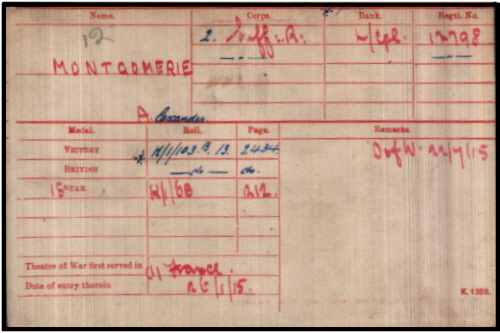 Name. Corps. Rank. Regtl. No.
12 2. Suff. R. L/Cpl. 13798
MONTGOMERIE
A. lexander
Medal. Roll. Page. Remarks.
VICTORY K/1/103.B.13. 2434 D of W. 22/7/15
BRITISH -do- do.
15 STAR K/1/6B 212.
Theatre of War first served in (1) France.
Date of entry therein 26/1/15.
K 1380.